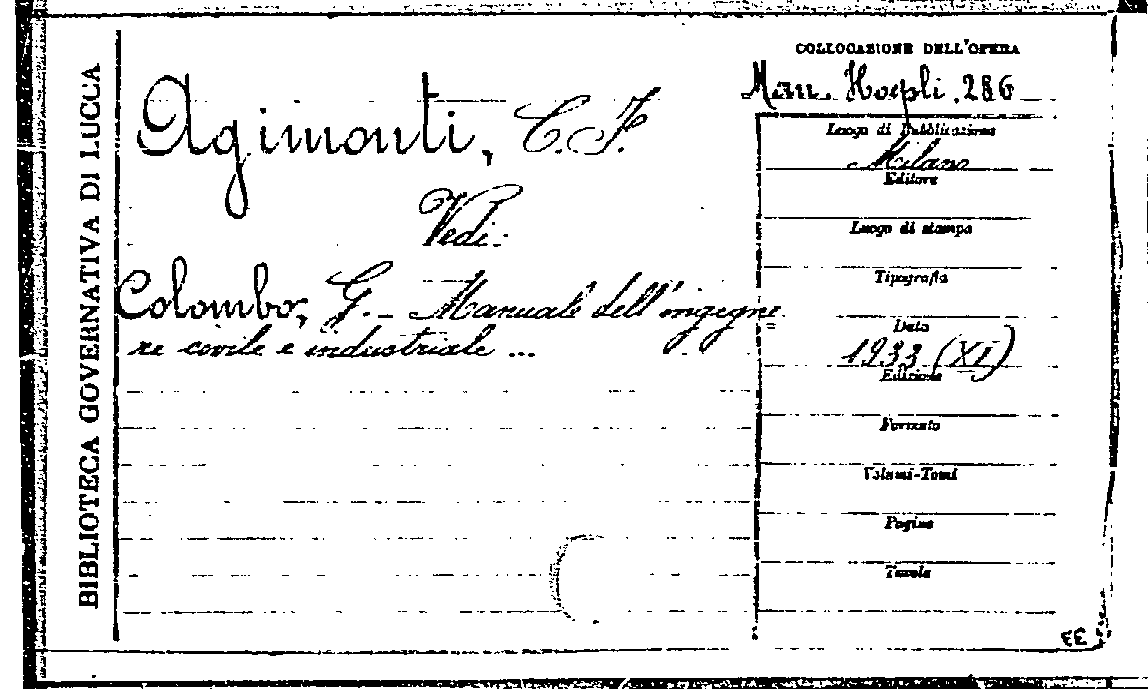 BIBLIOTECA GOVERNATIVA DI LUCCA
Agimonti, C. F.
Vedi:
Colombo, G. - Manuale dell'ingegne=
re civile e industriale ...
COLLOCAZIONE DELL'OPERA
Man. Hoepli. 286
Luogo di Pubblicazione
Milano
Editore
Luogo di stampa
Tipografia
Data
1933 (XI)
Edizione
Formato
Volumi-Tomi
Pagine
Tavole